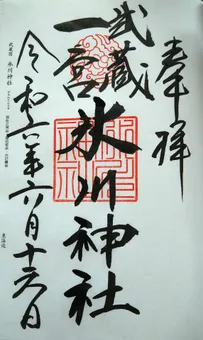 奉拝
武蔵
一宮
氷川神社
令和六年六月十六日
武蔵国 氷川神社